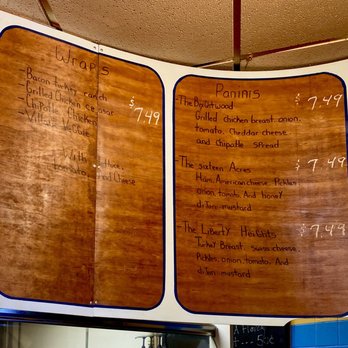 Wraps
-Bacon turkey ranch
-Grilled Chicken ceasar
-Chipotle Chicken
$7.49
With lettuce,
tomato, and Cheese
Paninis
-The Boswood
$7.49
Grilled chicken breast, onion,
tomato, Cheddar cheese,
and Chipotle Spread
-The sixteen Acres
$7.49
Ham, American cheese, Pickles,
onion, tomato, And honey
dijon mustard
-The Liberty Heights
$7.49
Turkey Breast, swiss cheese,
Pickles, onion, tomato, And
dijon mustard
50¢